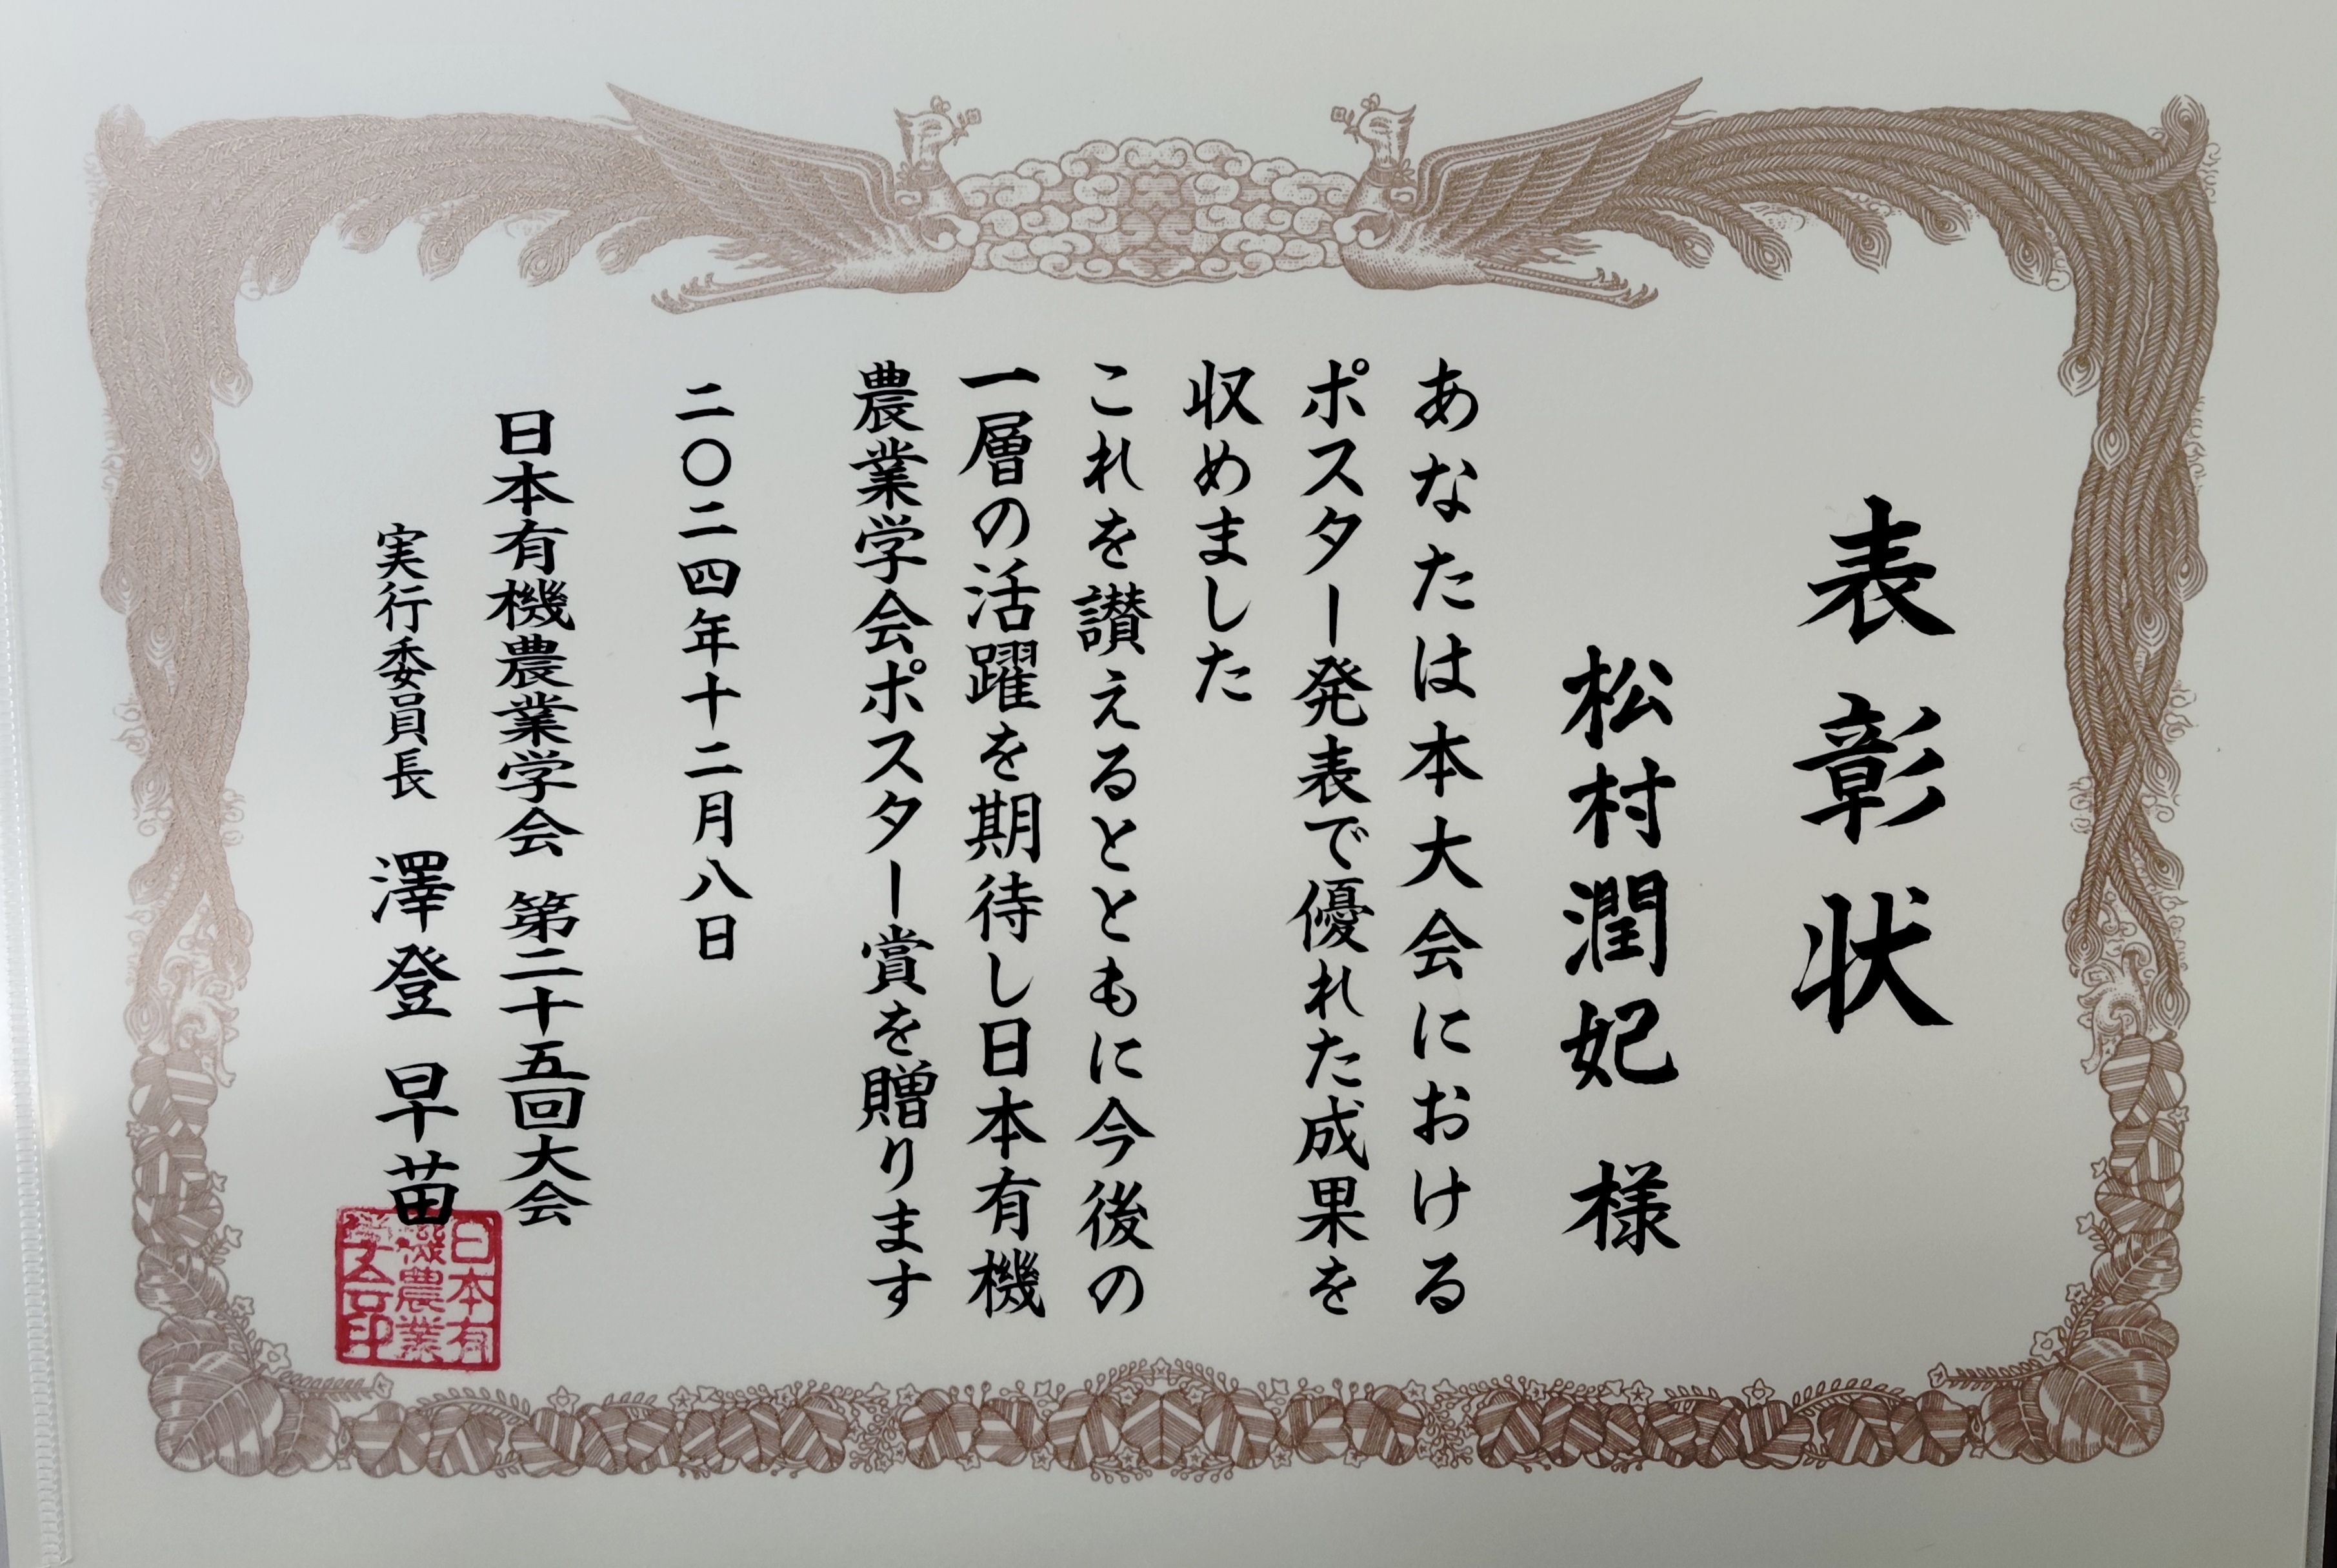 表彰状
松村潤妃 様
あなたは本大会における
ポスター発表で優れた成果を
収めました
これを讃えるとともに今後の
一層の活躍を期待し日本有機
農業学会ポスター賞を贈ります
二〇二四年十二月八日
日本有機農業学会 第二十五回大会
実行委員長 澤登 早苗
日本有
機農業
学会印